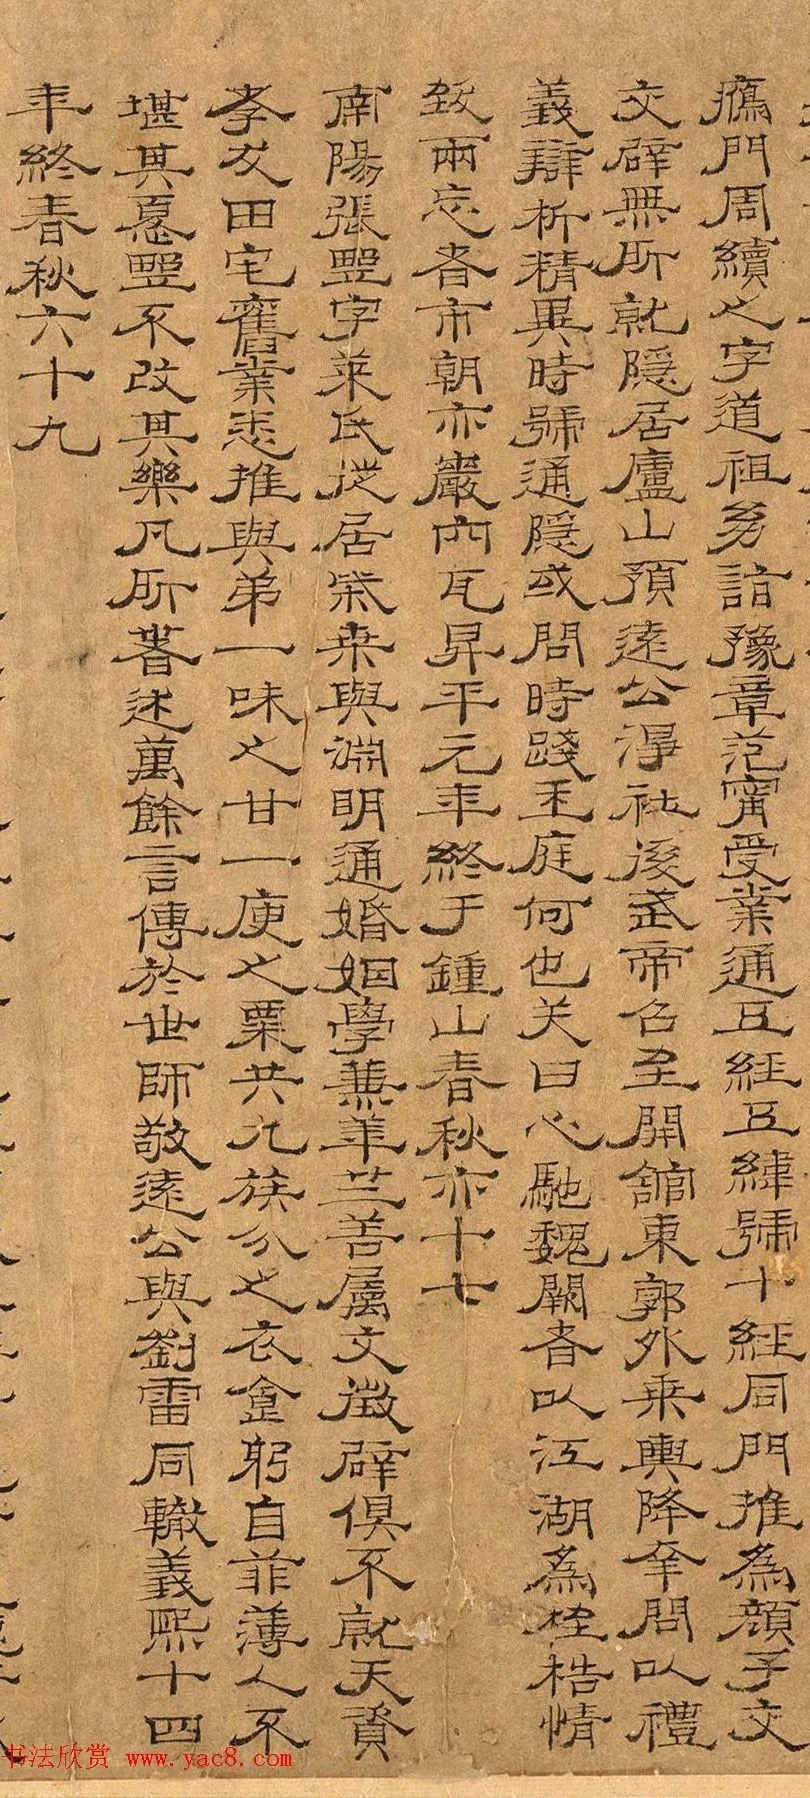 鴈門周續之字道祖身詣豫章范甯受業通五經五緯號十經同門推為顏子交
交辟無所就隱居廬山預遠公淨社後武帝召至開館東郭外乘輿降幸問以禮
義辯析精異時號通隱或問時踐王庭何也答曰心馳魏闕者以江湖為桎梏情
致兩忘者市朝亦巖穴耳昇平元年終于鍾山春秋亦十七
南陽張野字萊民徙居柴桑與淵明通婚姻學兼華竺善屬文徵辟俱不就天資
孝友田宅舊業悉推與弟一味之甘一庾之粟共九族分之衣食躬自菲薄人不
堪其憂野不改其樂凡所著述萬餘言傳於世師敬遠公與劉雷同轍義熙十四
年終春秋六十九
书法欣赏 www.yac8.com